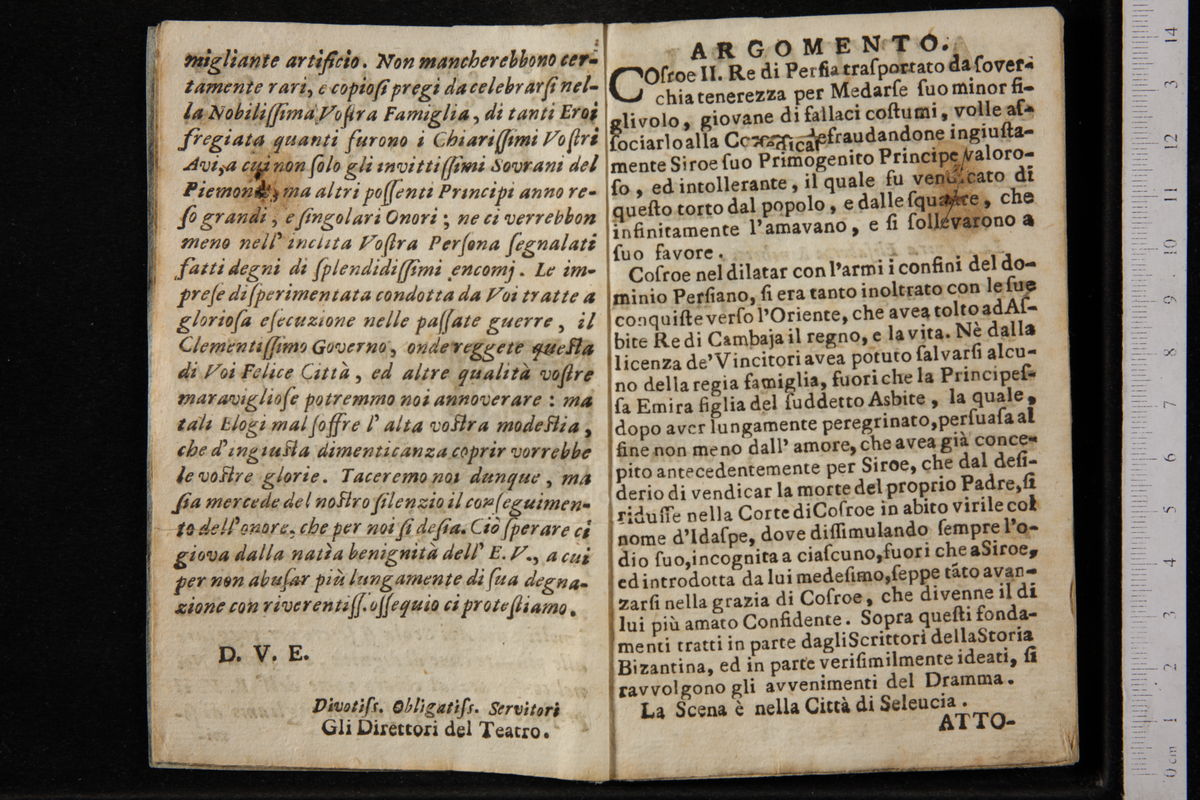 migliante artificio. Non mancherebbono cer-
tamente rari, e copioſi pregi da celebrarſi nel-
la Nobiliſſima Voſtra Famiglia, di tanti Eroi
fregiata quanti furono i Chiariſſimi Voſtri
Avi, a cui non ſolo gli invittiſſimi Sovrani del
ma altri poſſenti Principi anno re-
ſo grandi, e ſingolari Onori; ne ci verrebbon
meno nell' inclita Voſtra Perſona ſegnalati
fatti degni di ſplendidiſſimi encomj. Le im-
preſe diſperimentata condotta da Voi tratte a
glorioſa eſecuzione nelle paſſate guerre, il
Clementiſſimo Governo, onde reggete queſta
di Voi Felice Città, ed altre qualità voſtre
maraviglioſe potremmo noi annoverare: ma
tali Elogi mal ſoffre l' alta voſtra modeſtia,
che d' ingiuſta dimenticanza coprir vorrebbe
le voſtre glorie. Taceremo noi dunque, ma
ſia mercede del noſtro ſilenzio il conſeguimen-
to dell' onore, che per noi ſi deſia. Ciò ſperare ci
giova dalla natìa benignità dell' E. V., a cui
per non abuſar più lungamente di ſua degna-
zione con riverentiſſ. oſſequio ci proteſtiamo.
D. V. E.
Divotiſs. Obligatiſs. Servitori
Gli Direttori del Teatro.
ARGOMENTO.
COſroe II. Re di Perſia traſportato da ſover-
chia tenerezza per Medarſe ſuo minor fi-
glivolo, giovane di fallaci coſtumi, volle aſ-
ſociarlo alla defraudandone ingiuſta-
mente Siroe ſuo Primogenito Principe valoro-
ſo, ed intollerante, il quale fu vendicato di
queſto torto dal popolo, e dalle ſquadre, che
infinitamente l'amavano, e ſi ſollevarono a
ſuo favore.
Coſroe nel dilatar con l'armi i confini del do-
minio Perſiano, ſi era tanto inoltrato con le ſue
conquiſte verſo l'Oriente, che avea tolto ad Aſ-
bite Re di Cambaja il regno, e la vita. Nè dalla
licenza de' Vincitori avea potuto ſalvarſi alcu-
no della regia famiglia, fuori che la Principeſ-
ſa Emira figlia del ſuddetto Asbite, la quale,
dopo aver lungamente peregrinato, perſuaſa al
fine non meno dall' amore, che avea già conce-
pito antecedentemente per Siroe, che dal deſi-
derio di vendicar la morte del proprio Padre, ſi
riduſſe nella Corte di Coſroe in abito virile col
nome d'Idaſpe, dove diſſimulando ſempre l'o-
dio ſuo, incognita a ciaſcuno, fuori che a Siroe,
ed introdotta da lui medeſimo, ſeppe tãto avan-
zarſi nella grazia di Coſroe, che divenne il di
lui più amato Confidente. Sopra queſti fonda-
menti tratti in parte dagli Scrittori della Storia
Bizantina, ed in parte veriſimilmente ideati, ſi
ravvolgono gli avvenimenti del Dramma.
La Scena è nella Città di Seleucia.
ATTO-